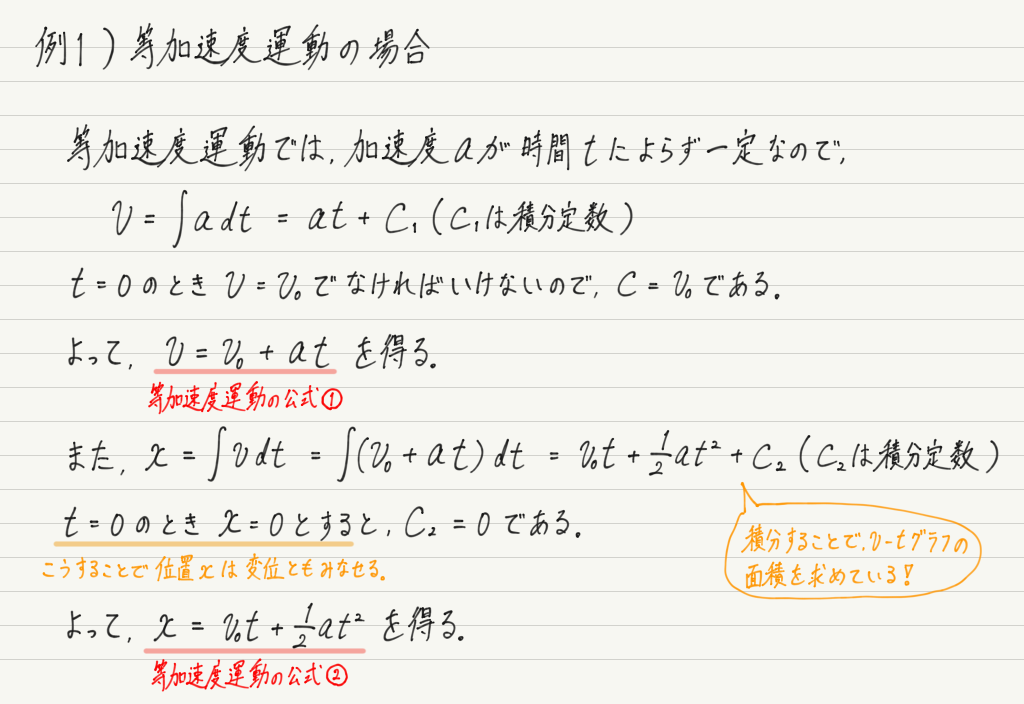 例1)等加速度運動の場合
等加速度運動では,加速度aが時間tによらず一定なので,
v = ∫a dt = at + C₁(C₁は積分定数)
t=0のとき v=v₀でなければいけないので, C=v₀である.
よって, v = v₀ + at を得る.
等加速度運動の公式①
また, x = ∫v dt = ∫(v₀ + at) dt = v₀t + 1/2 at² + C₂(C₂は積分定数)
t=0のとき x=0とすると, C₂=0である.
こうすることで位置xは変位ともみなせる.
積分することで,v-tグラフの
面積を求めている!
よって, x = v₀t + 1/2 at² を得る.
等加速度運動の公式②